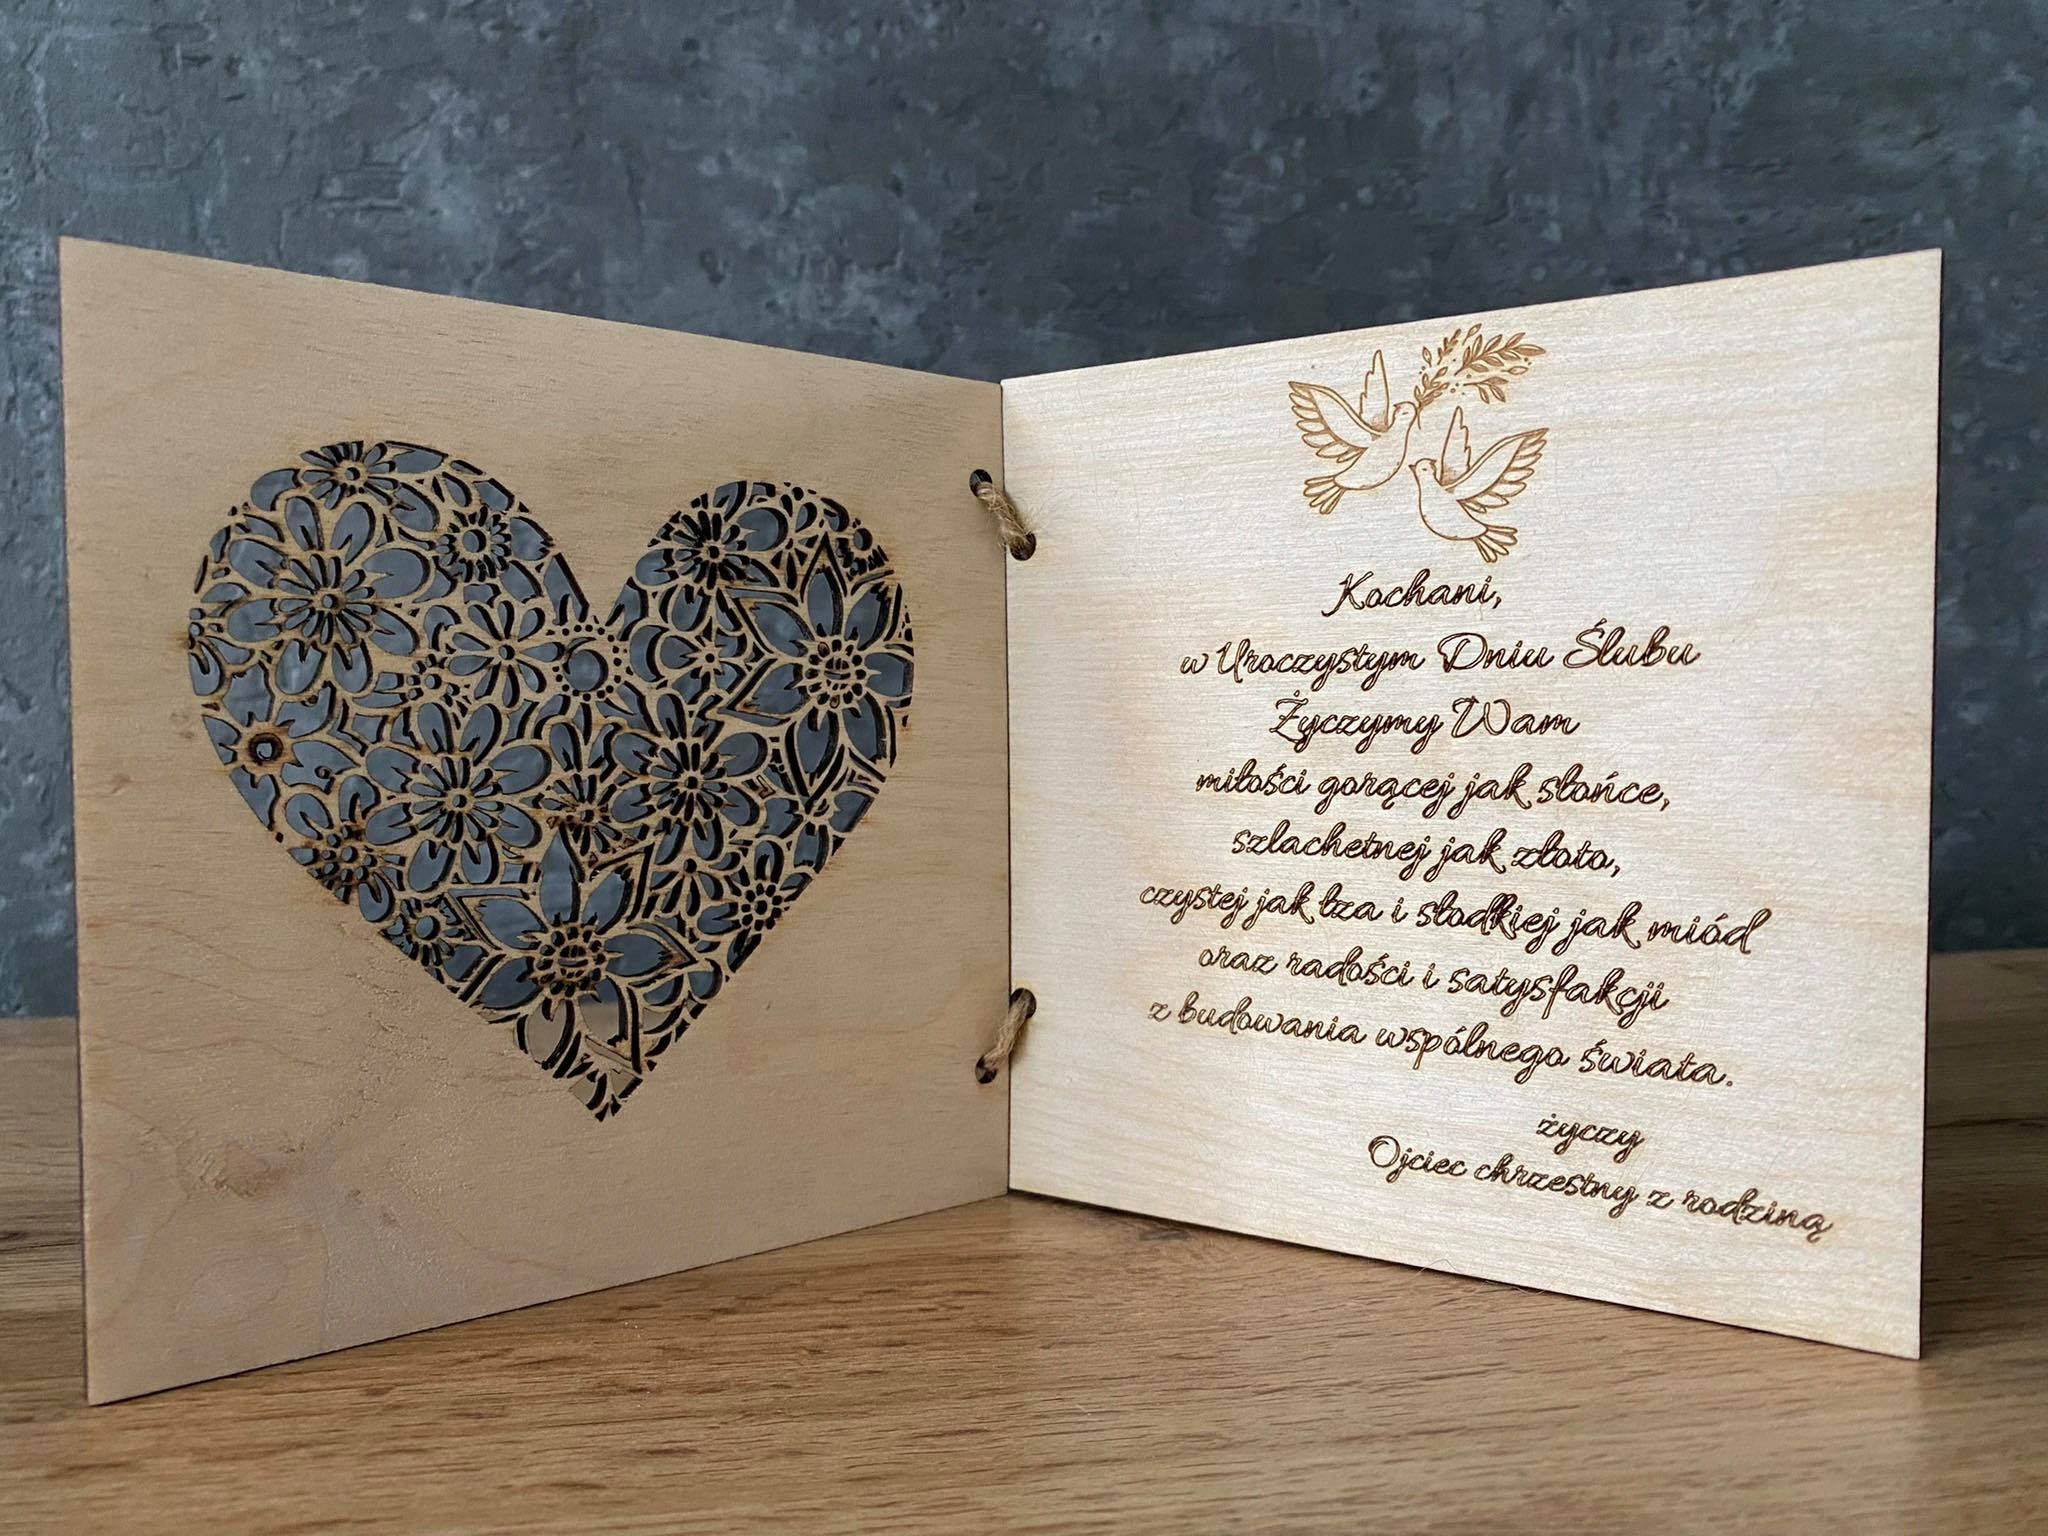 Kochani,
w Uroczystym Dniu Ślubu
Życzymy Wam
miłości gorącej jak słońce,
szlachetnej jak złoto,
czystej jak łza i słodkiej jak miód
oraz radości i satysfakcji
z budowania wspólnego świata.
życzy
Ojciec chrzestny z rodziną